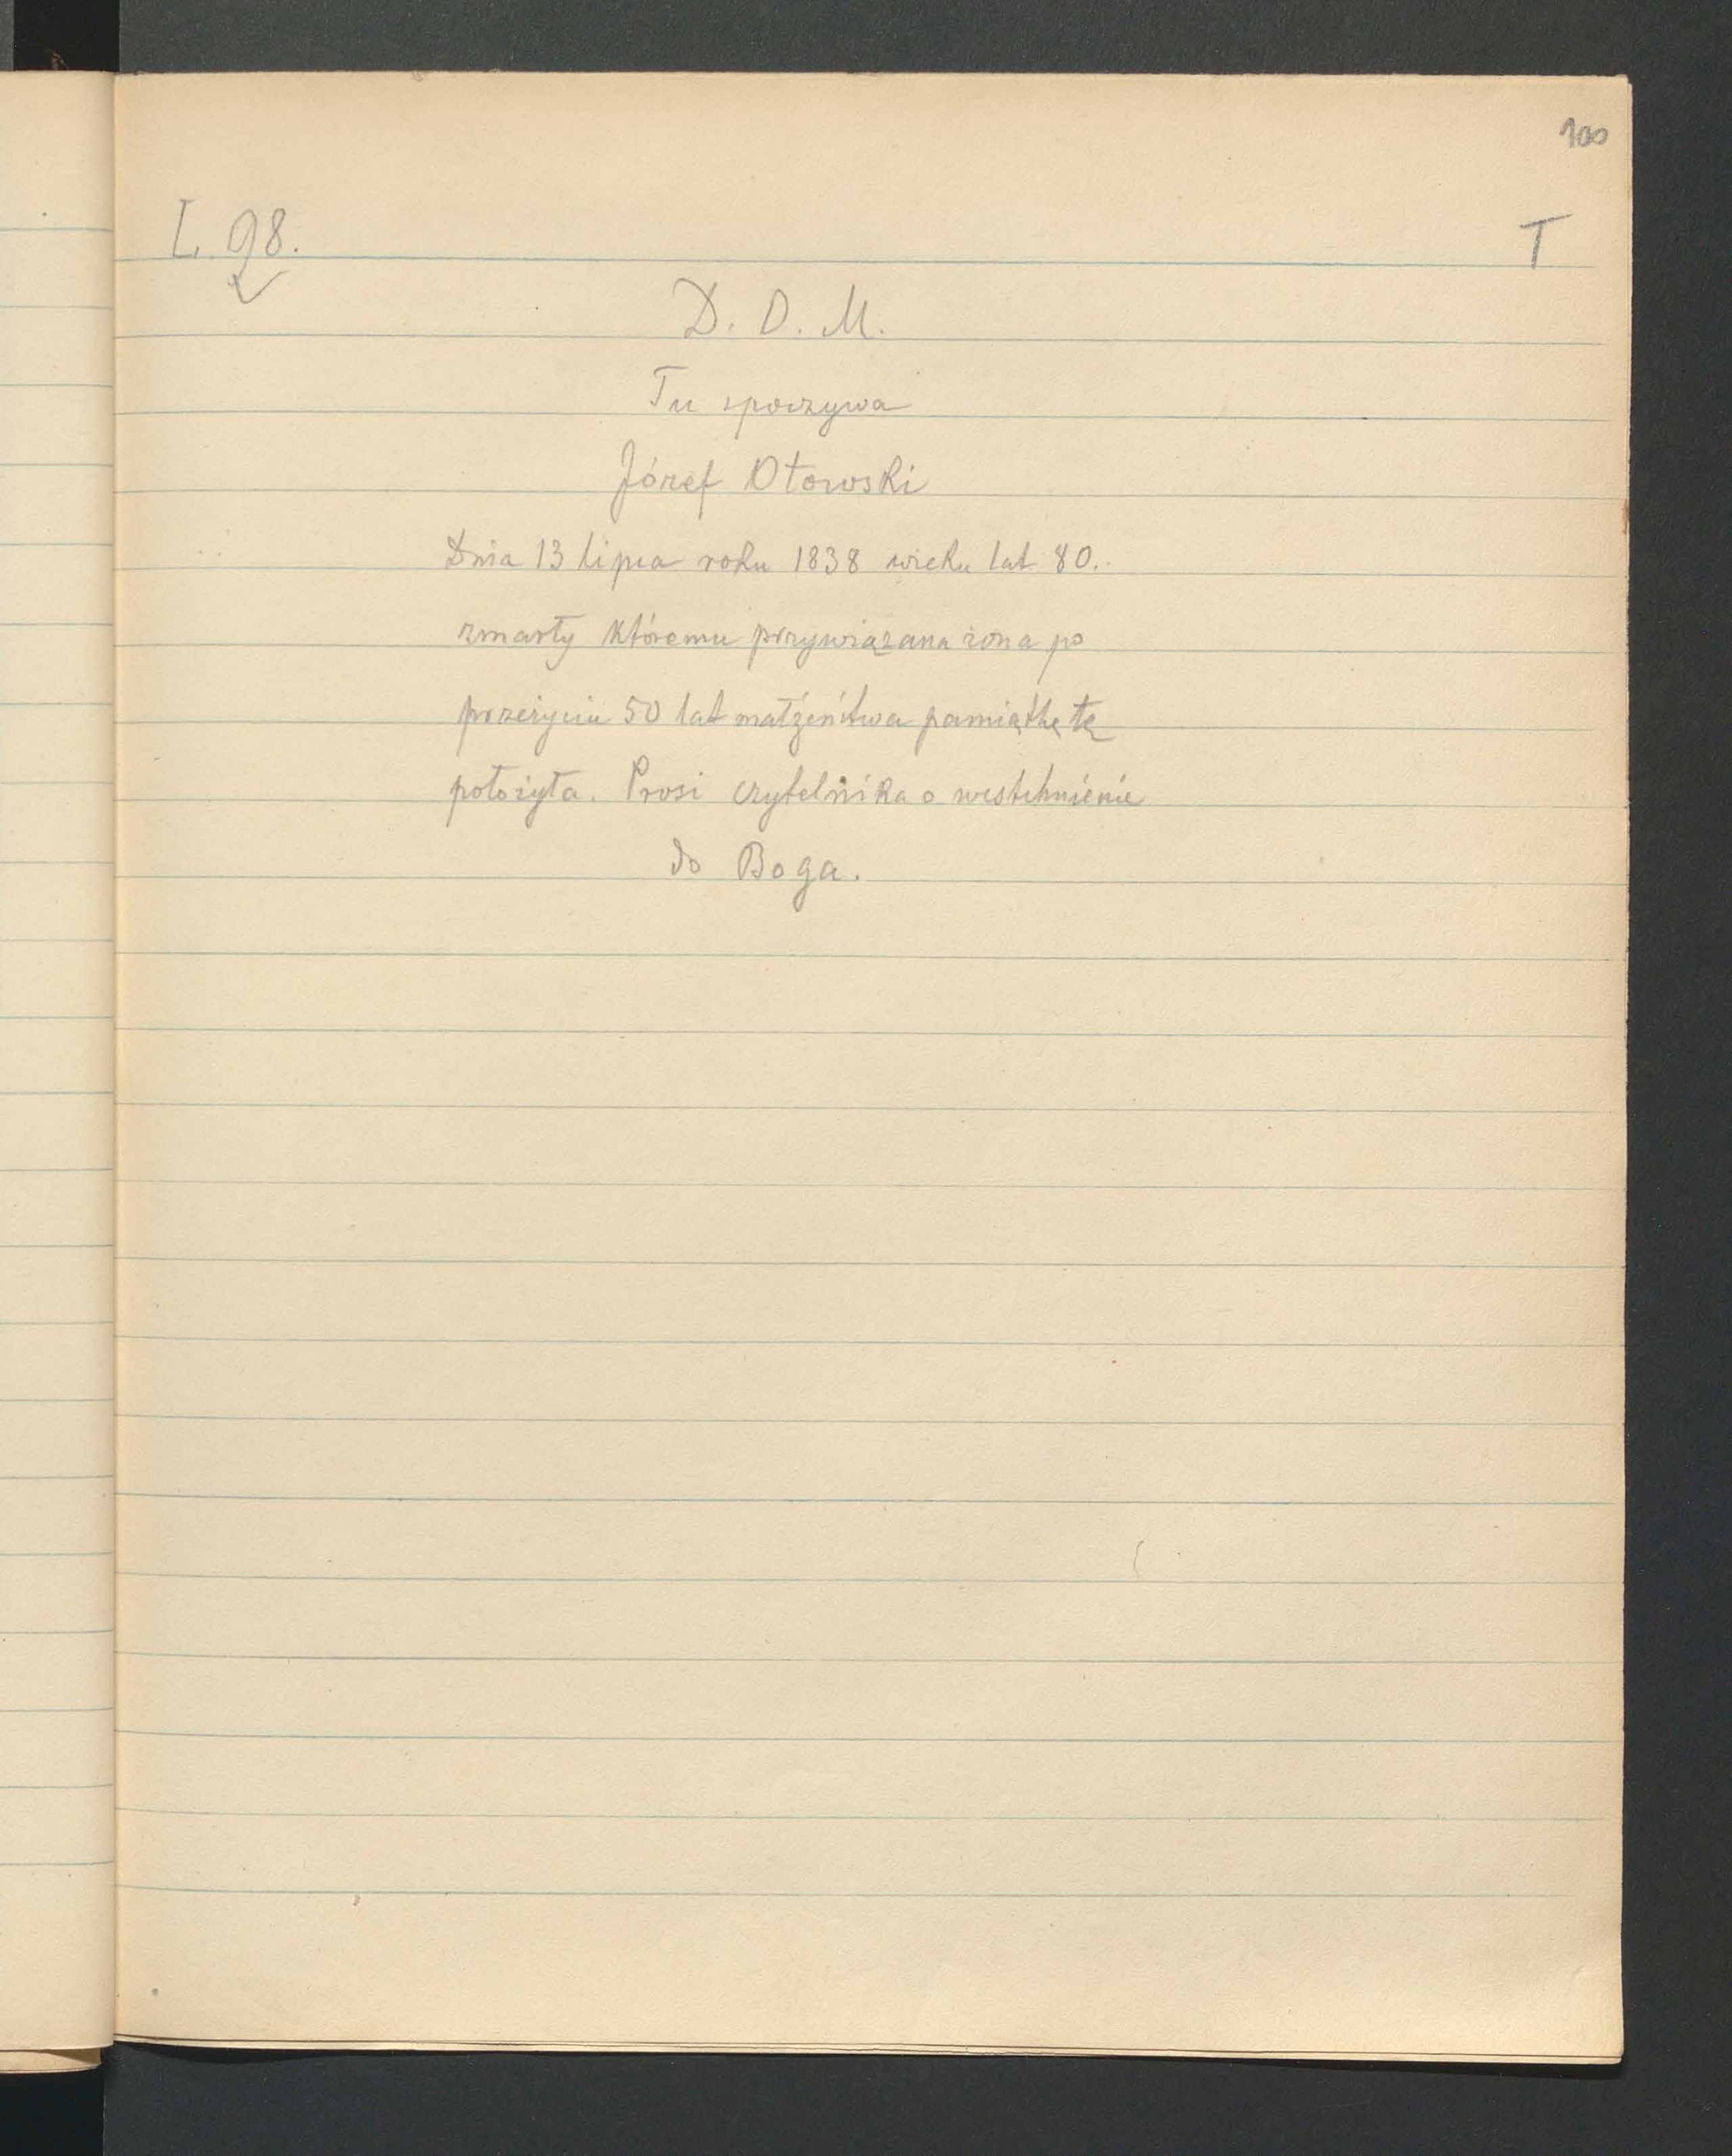 100
L. 98.
T
D. O. M.
Tu spoczywa
Józef Otowski
Dnia 13 lipca roku 1838 wieku lat 80.
zmarły któremu przywiązana żona po
przeżyciu 50 lat małżeństwa pamiątkę tę
położyła. Prosi czytelnika o westchnienie
do Boga.